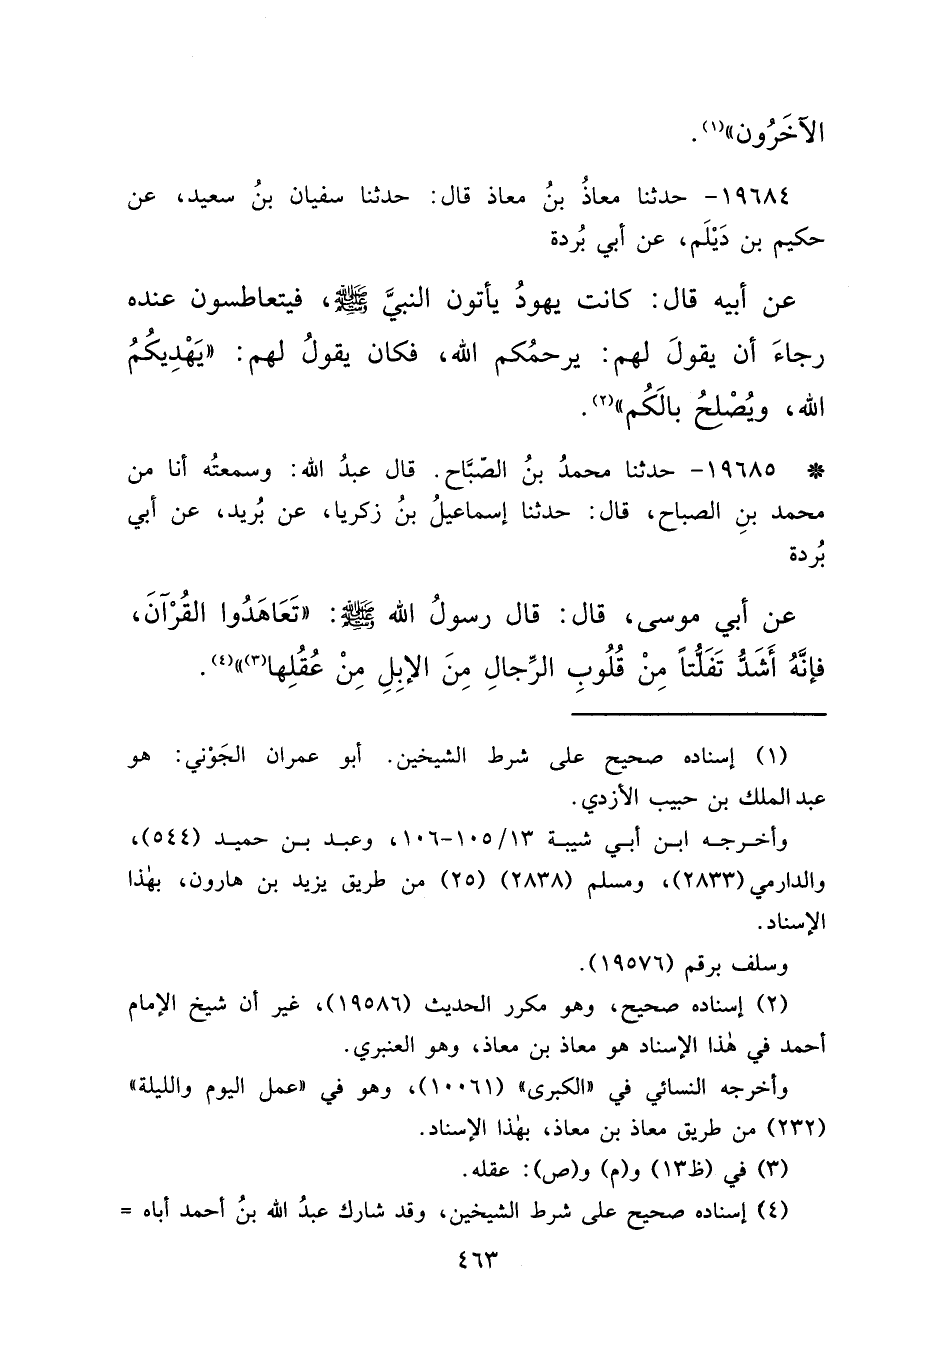 الآخَرُون»(١).
١٩٦٨٤- حدثنا معاذُ بنُ معاذ قال: حدثنا سفيان بنُ سعيد، عن
حكيم بن دَيْلَم، عن أبي بُردة
عن أبيه قال: كانت يهودُ يأتون النبيَّ ﷺ، فيتعاطسون عنده
رجاءَ أن يقولَ لهم: يرحمُكم الله، فكان يقولُ لهم: «يَهْدِيكُمُ
الله، ويُصْلحُ بالَكُم»(٢).
* ١٩٦٨٥- حدثنا محمدُ بنُ الصّبَّاح. قال عبدُ الله: وسمعتُه أنا من
محمد بنِ الصباح، قال: حدثنا إسماعيلُ بنُ زكريا، عن بُريد، عن أبي
بُردة
عن أبي موسى، قال: قال رسولُ الله ﷺ: «تَعَاهَدُوا القُرْآنَ،
فإنَّهُ أَشَدُّ تَفَلُّتاً مِنْ قُلُوبِ الرِّجالِ مِنَ الإبِلِ مِنْ عُقُلِها(٣)»(٤).
(١) إسناده صحيح على شرط الشيخين. أبو عمران الجَوْني: هو
عبد الملك بن حبيب الأزدي.
وأخرجه ابن أبي شيبة ١٠٥/١٣-١٠٦، وعبد بن حميد (٥٤٤)،
والدارمي (٢٨٣٣)، ومسلم (٢٨٣٨) (٢٥) من طريق يزيد بن هارون، بهٰذا
الإسناد.
وسلف برقم (١٩٥٧٦).
(٢) إسناده صحيح، وهو مكرر الحديث (١٩٥٨٦)، غير أن شيخ الإمام
أحمد في هٰذا الإسناد هو معاذ بن معاذ، وهو العنبري.
وأخرجه النسائي في «الكبرى» (١٠٠٦١)، وهو في «عمل اليوم والليلة»
(٢٣٢) من طريق معاذ بن معاذ، بهٰذا الإسناد.
(٣) في (ظ١٣) و(م) و(ص): عقله.
(٤) إسناده صحيح على شرط الشيخين، وقد شارك عبدُ الله بنُ أحمد أباه =
٤٦٣